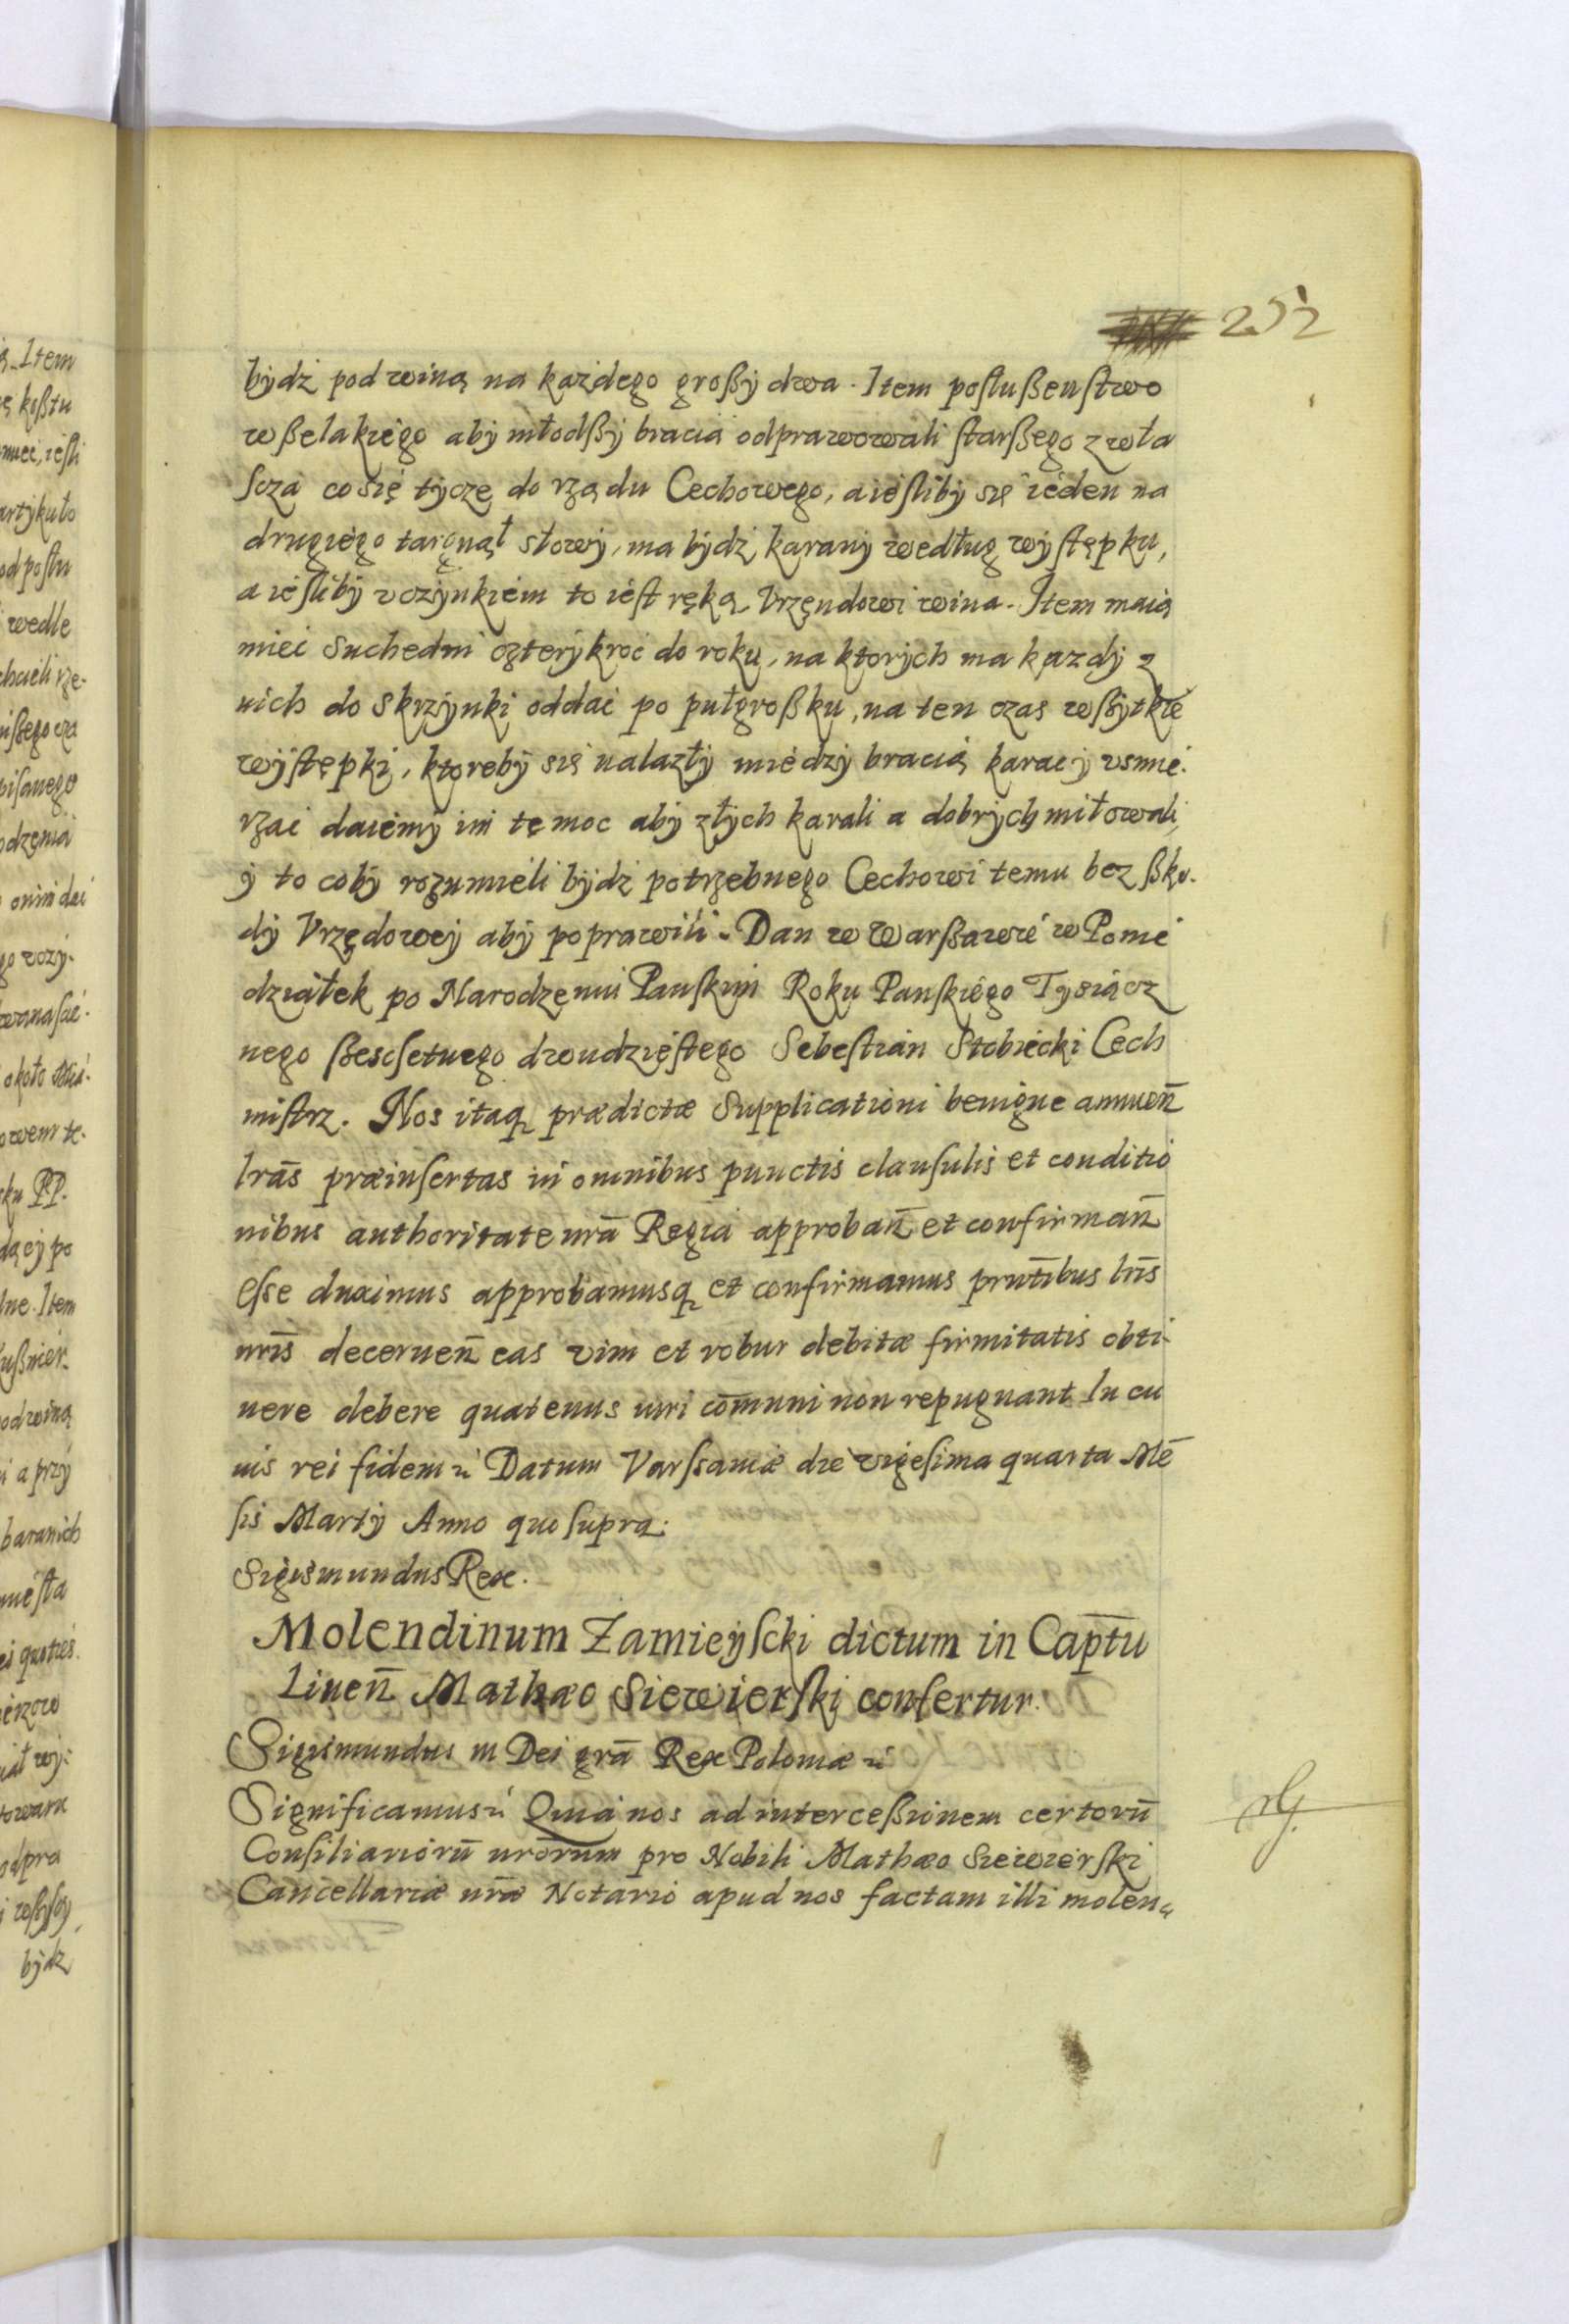 252
bydź pod winą na kazdego großy dwa. Item posłußenstwo
wßelakiego aby młodßy bracia odprawowali starßego zwła
scza co się tycze do rządu Cechowego, a iesliby się ieden na
drugiego targnął słowy, ma bydź karany według występku,
a iesliby vczynkiem to iest ręką Vrzęndowi wina. Item maią
mieć Suchedni czterykroć do roku, na ktorych ma kazdy z
nich do skrzynki oddać po pułgroßku, na ten czas wßytkie
występki, ktoreby się nalazły miedzy bracią karać y vsmie.
rzać daiemy im tę moc aby złych karali a dobrych miłowali,
y to coby rozumieli bydź potrzebnego Cechowi temu bez ßko.
dy Vrzędowey aby poprawili. Dan w Warßawie w Ponie
działek po Narodzeniu Panskim Roku Panskiego Tysiącz
nego ßescsetnego dwudziestego Sebestian Stobiecki Cech
mistrz. Nos itaq, prædictæ Supplicationi benigne annuen̄
lrās præinsertas in omnibus punctis clausulis et conditio
nibus authoritate nrā Regia approban̄ et confirman̄
esse duximus approbamusq, et confirmamus prntībus lrīs
nrīs decernen̄ eas vim et robur debitæ firmitatis obti-
nere debere quatenus iuri com̄uni non repugnant. In cu
ius rei fidem ꝛć Datum Varssaviæ die vigesima quarta Mē
sis Martÿ Anno quo supra.
Sigismundus Rex.
Molendinum Zamieyscki dictum in Captū
Liuen̄ Mathæo Siewierski confertur.
Sigismundus III Dei grā Rex Poloniæ ꝛć
Significamus ꝛć Quia nos ad intercessionem certorū
Consiliariorū nrōrum pro Nobili Mathæo Siewierski
Cancellariæ nrǣ Notario apud nos factam illi molen-